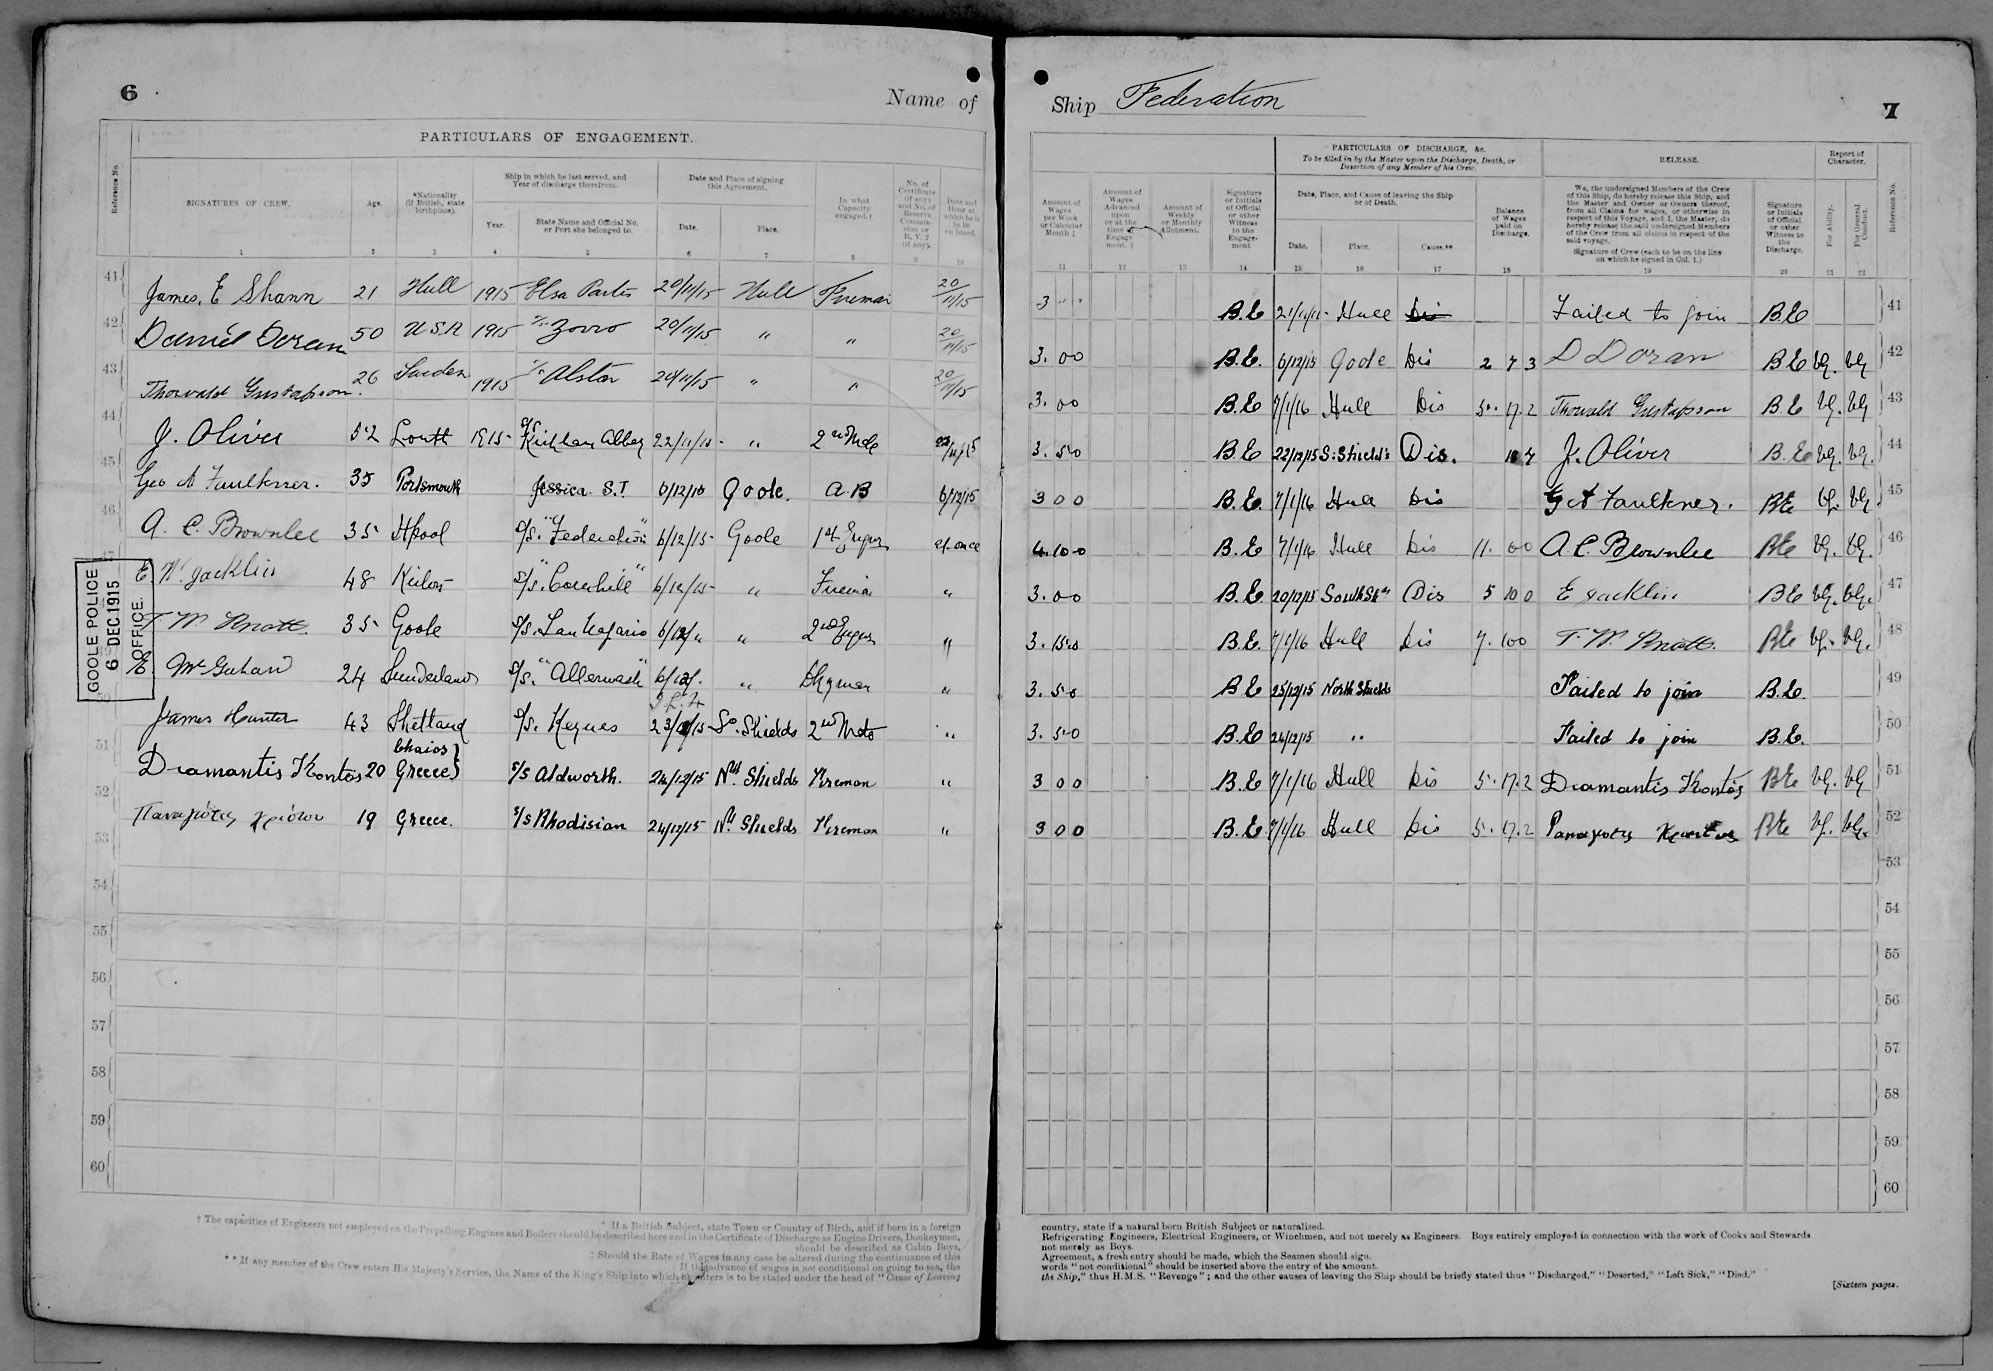 6
Name of
Ship Federation
7
PARTICULARS OF ENGAGEMENT.
Reference No.
SIGNATURES OF CREW.
Age.
*Nationality
(If British, state
birthplace).
Ship in which he last served, and
Year of discharge therefrom.
Year.
State Name and Official No.
or Port she belonged to.
Date and Place of signing
this Agreement.
Date.
Place.
In what
Capacity
engaged.†
No. of
Certificate
(if any)
and No. of
Reserve
Commis-
sion or
R. V. 2
(if any).
Date and
Hour at
which he is
to be
on board.
1 2 3 4 5 6 7 8 9 10
41 James. E Shann 21 Hull 1915 20/11/15 Hull Fireman 20/11/15
42 Daniel Doran 50 U.S.A 1915 S/s Zorro 20/11/15 " " 20/11/15
43 Thorvald Gustafsson. 26 Sweden 1915 S/s Alston 20/11/15 " " 20/11/15
44 J. Oliver 52 Louth 1915 S/s Kirkham Abbey 22/11/15 " 2nd Mate 22/11/15
45 Geo A Faulkner. 35 Portsmouth Jessica S.T. 6/12/15 Goole. A.B 6/12/15
46 A. C. Brownlee 35 H'pool S/s. "Federation" 6/12/15 Goole 1st Engnr at once
47 E. W. Jacklin 48 S/s. 6/12/15 " Fireman "
T W Knott. 35 Goole S/s. 6/12/" " 2nd Engnr "
E. McGuhan 24 Sunderland S/s. "Allerwash" 6/12/. " Dkyman "
50 James Hunter 43 Shetland S/s. Keynes 23/12/15 So. Shields 2nd Mate "
51 Diamantis Kontos 20 Chaios Greece } S/s Aldworth. 24/12/15 Nth Shields Fireman "
52 Παναγιότις 19 Greece. S/s Rhodisian 24/12/15 Nth Shields Fireman "
53
54
55
56
57
58
59
60
GOOLE POLICE
6 DEC 1915
OFFICE.
† The capacities of Engineers not employed on the Propelling Engines and Boilers should be described here and in the Certificate of Discharge as Engine Drivers, Donkeymen,
* If a British Subject, state Town or Country of Birth, and if born in a foreign
should be described as Cabin Boys,
‡ Should the Rate of Wages in any case be altered during the continuance of this
If the advance of wages is not conditional on going to sea, the
** If any member of the Crew enters His Majesty's Service, the Name of the King's Ship into which he enters is to be stated under the head of "Cause of Leaving
Amount of
Wages
per Week
or Calendar
Month ‡
Amount of
Wages
Advanced
upon
or at the
time of
Engage-
ment. ‡
Amount of
Weekly
or Monthly
Allotment.
Signature
or Initials
of Official
or other
Witness
to the
Engage-
ment
PARTICULARS OF DISCHARGE, &c.
To be filled in by the Master upon the Discharge, Death, or
Desertion of any Member of his Crew.
Date, Place, and Cause of leaving the Ship
or of Death.
Date.
Place.
Cause.**
Balance
of Wages
paid on
Discharge.
RELEASE.
We, the undersigned Members of the Crew
of this Ship, do hereby release this Ship, and
the Master and Owner or Owners thereof,
from all Claims for wages, or otherwise in
respect of this Voyage, and I, the Master, do
hereby release the said undersigned Members
of the Crew from all claims in respect of the
said voyage.
Signature of Crew (each to be on the line
on which he signed in Col. 1.)
Signature
or Initials
of Official
or other
Witness to
the
Discharge.
Report of
Character.
For Ability.
For General
Conduct.
Reference No.
11 12 13 14 15 16 17 18 19 20 21 22
3 - - B.E 21/11/15 Hull Dis Failed to join B.E 41
3.00 B.E. 6/12/15 Goole Dis 2 7 3 D Doran B E VG. VG 42
3.00 B.E 7/1/16 Hull Dis 5.17.2 Thorvald Gustafsson B.E VG. VG 43
3.50 B.E 22/12/15 S. Shields Dis. J. Oliver B.E VG. VG. 44
3 0 0 B.E. 7/1/16 Hull Dis G A Faulkner. BE VG. VG. 45
4.10.0 B.E 7/1/16 Hull Dis 11.00 A. C. Brownlee BE VG. VG. 46
3.00 B.E. 20/12/15 South Shds Dis 5 10 0 E Jacklin BE VG. VG. 47
3.15.0 B.E. 7/1/16 Hull Dis 7.100 T. W. Knott. BE VG. VG. 48
3.50 B E 25/12/15 North Shields Failed to join B.E. 49
3.50 B.E 24/12/15 " Failed to join B.E. 50
3 0 0 B.E 7/1/16 Hull Dis 5.17.2 Diamantis Kontos BE VG. VG 51
3 0 0 B.E 7/1/16 Hull Dis 5.17.2 BE VG. VG. 52
53
54
55
56
57
58
59
60
country, state if a natural born British Subject or naturalized.
Refrigerating Engineers, Electrical Engineers, or Winchmen, and not merely as Engineers. Boys entirely employed in connection with the work of Cooks and Stewards
not merely as Boys.
Agreement, a fresh entry should be made, which the Seamen should sign.
words "not conditional" should be inserted above the entry of the amount.
the Ship," thus H.M.S. "Revenge"; and the other causes of leaving the Ship should be briefly stated thus "Discharged," "Deserted," "Left Sick," "Died."
[Sixteen pages.